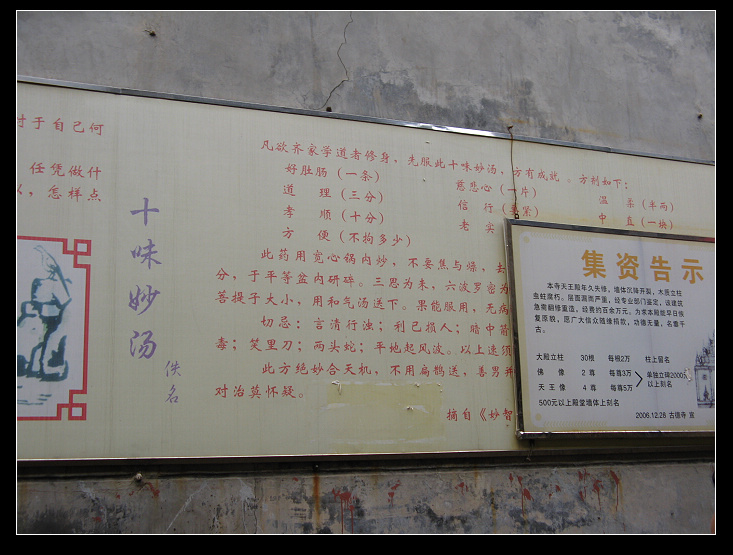 对于自己何
任凭做什
，怎样点
十味妙汤
佚名
凡欲齐家学道者修身，先服此十味妙汤，方有成就。方剂如下：
好肚肠（一条） 慈悲心（一片） 温 柔（半两）
道 理（三分） 信 行（要紧） 中 直（一块）
孝 顺（十分） 老 实
方 便（不拘多少）
此药用宽心锅内炒，不要焦与燥，去
分，于平等盆内研碎。三思为末，六波罗密为
菩提子大小，用和气汤送下。果能服用，无病
切忌：言清行浊；利己损人；暗中箭
毒；笑里刀；两头蛇；平地起风波。以上速须
此方绝妙合天机，不用扁鹊送，善男并
对治莫怀疑。
摘自《妙智
集资告示
本寺天王殿年久失修，墙体沉降开裂，木质立柱
虫蛀腐朽。屋面漏雨严重，经专业部门鉴定，该建筑
急需翻修重造，经费约百余万元。为求本殿能早日恢
复原貌，愿广大信众随缘捐款，功德无量，名垂千
古。
大殿立柱 30根 每根2万 柱上留名
佛 像 2 尊 每尊3万 单独立碑2000元
天 王 像 4 尊 每尊5万 以上刻名
500元以上殿堂墙体上刻名
2006.12.28 古德寺 宣